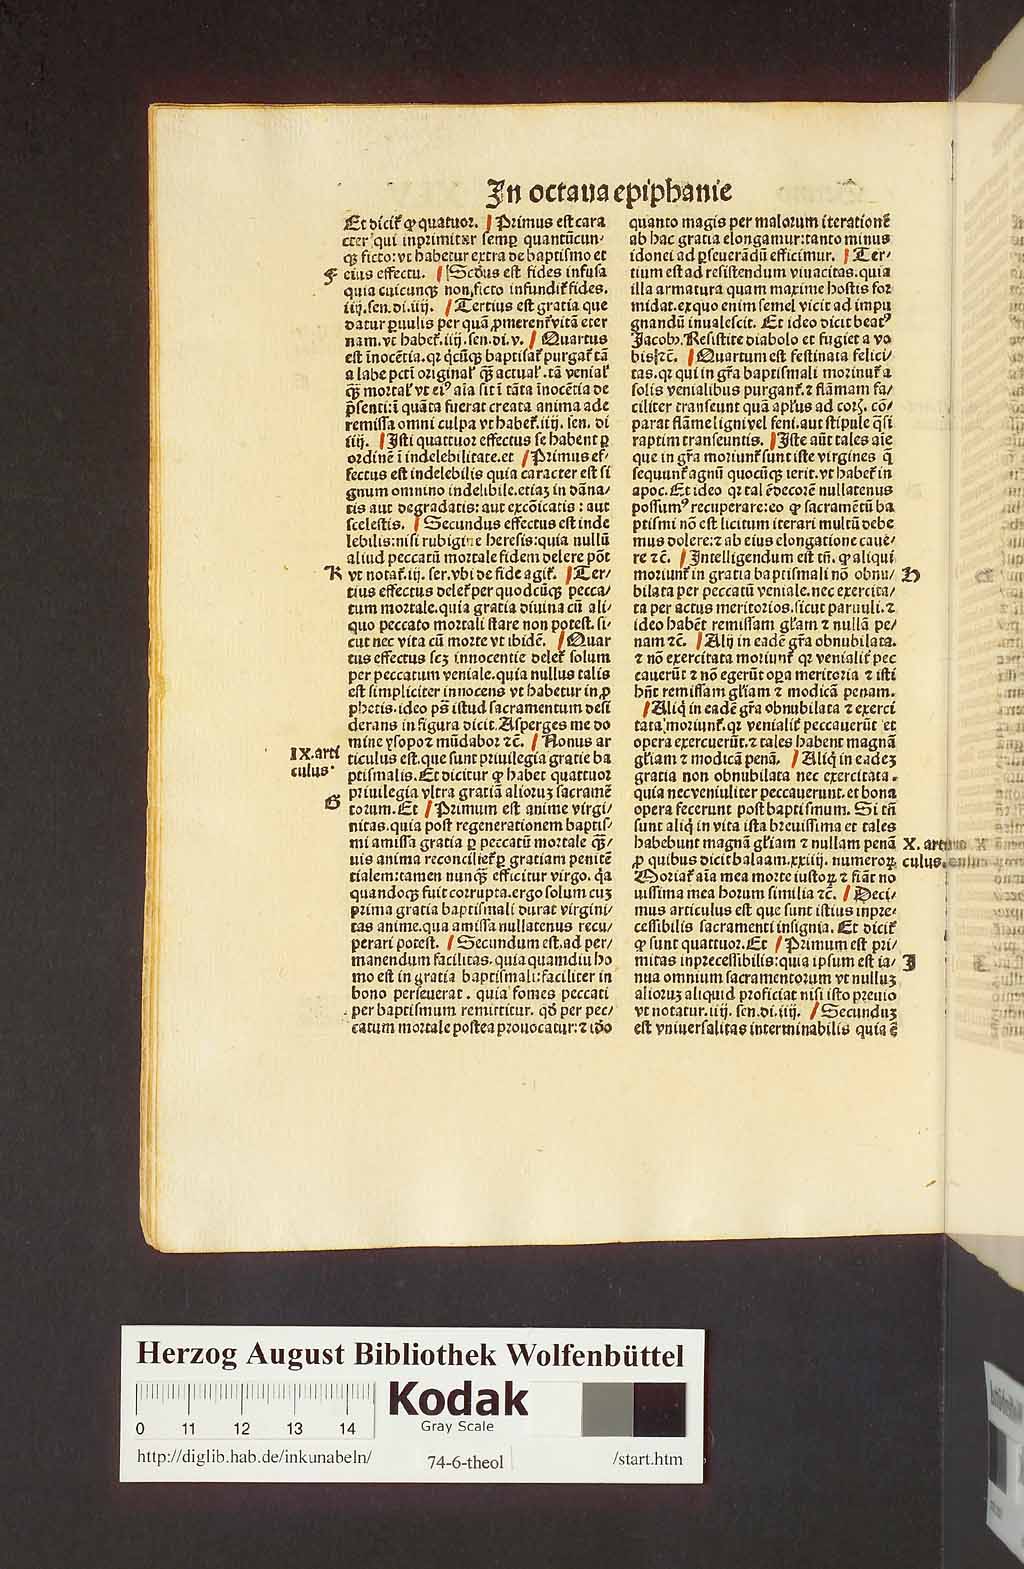 In octaua epiphanie
Et dicit̉ ꝙ quatuor. Primus est cara
cter qui inprimitur semꝑ quantūcun⸗
qꝫ ficto: vt habetur extra de baptismo et
F
eius effectu. Scd̄us est fides infusa
quia cuicunqꝫ non ficto infundit̉ fides.
iiij.sen.di.iiij. Tertius est gratia que
datur ꝑuulis per quā ꝓmerent̉ vitā eter
nam. vt habet̉.iiij.sen.di.v. Quartus
est īnocētia. qꝛ q̇cūqꝫ baptisat̉ purgat̉ tā
a labe pctī original̉ qꝫ̄ actual̉. tā venial̉
qꝫ̄ mortal̉ vt eiꝰ aīa sit ī tāta īnocētia de
p̄senti: ī quāta fuerat creata anima ade
remissa omni culpa vt habet̉.iiij.sen. di
iiij. Isti quattuor effectus se habent ꝑ
ordinē ī indelebilitate. et Primus ef⸗
fectus est indelebilis quia caracter est si
gnum omnino indelibile. etiaꝫ in dāna⸗
tis aut degradatis: aut excōicatis: aut
scelestis. Secundus effectus est inde
lebilis: nisi rubigine heresis: quia nullū
aliud peccatū mortale fidem delere pōt
K
vt notat̉.iij.ser.vbi de fide agit̉. Ter⸗
tius effectus delet̉ per quodcūqꝫ pecca⸗
tum mortale. quia gratia diuina cū ali⸗
quo peccato mortali stare non potest. si⸗
cut nec vita cū morte vt ibidē. Quar
tus effectus scꝫ innocentie delet̉ solum
per peccatum veniale. quia nullus talis
est simpliciter innocens vt habetur in ꝓ
phetis. ideo ps̄ istud sacramentum desi
derans in figura dicit. Asperges me do
mine ysopo ⁊ mūdabor ⁊c̄. Nonus ar
IX.arti
culus.
ticulus est. que sunt priuilegia gratie ba
ptismalis. Et dicitur ꝙ habet quattuor
priuilegia vltra gratiā alioruꝫ sacramē
G
torum. Et Primum est anime virgi⸗
nitas. quia post regenerationem baptis⸗
mi amissa gratia ꝑ peccatū mortale qꝫ̄⸗
uis anima reconciliet̉ ꝑ gratiam penitē
tialem: tamen nunqꝫ̄ efficitur virgo. q̇a
quandoqꝫ fuit corrupta. ergo solum cuꝫ
prima gratia baptismali durat virgini⸗
tas anime. qua amissa nullatenus recu⸗
perari potest. Secundum est. ad per⸗
manendum facilitas. quia quamdiu ho
mo est in gratia baptismali: faciliter in
bono perseuerat. quia fomes peccati
per baptismum remittitur. qđ per pec⸗
catum mortale postea prouocatur: ⁊ iđo
quanto magis per malorum iterationē
ab hac gratia elongamur: tanto minus
idonei ad ꝑseuerādū efficimur. Ter⸗
tium est ad resistendum viuacitas. quia
illa armatura quam maxime hostis for
midat. ex quo enim semel vicit ad impu
gnandū inualescit. Et ideo dicit beatꝰ
Jacobꝰ. Resistite diabolo et fugiet a vo
bis ⁊c̄. Quartum est festinata felici⸗
tas. qꝛ qui in gr̄a baptismali morinut̉ a
solis venialibus purgant̉. ⁊ flāmam fa⸗
ciliter transeunt quā apl̄us ad corꝫ. cō⸗
parat flāme ligni vel feni. aut stipule q̄si
raptim transeuntis. Iste aūt tales aīe
que in gr̄a moriunt̉ sunt iste virgines q̄
sequunt̉ agnū quocūqꝫ ierit. vt habet̉ in
apoc. Et ideo qꝛ tal̉ ē decorē nullatenus
possumꝰ recuperare: eo ꝙ sacramētū ba
ptismi nō est licitum iterari multū debe
mus dolere: ⁊ ab eius elongatione cauē⸗
re ⁊c̄. Intelligendum est tn̄. ꝙ aliqui
moriunt̉ in gratia baptismali nō obnu⸗
H
bilata per peccatū veniale. nec exercita⸗
ta per actus meritorios. sicut paruuli. ⁊
ideo habēt remissam gl̄iam ⁊ nullā pe⸗
nam ⁊c̄. Alij in eadē gr̄a obnubilata.
⁊ nō exercitata moriunt̉ qꝛ venialit̉ pec
cauerūt ⁊ nō egerūt oꝑa meritoria ⁊ isti
hn̄t remissam gl̄iam ⁊ modicā penam.
Aliq̇ in eadē gr̄a obnubilata ⁊ exerci
tata moriunt̉. qꝛ venialit̉ peccauerūt et
opera exercuerūt. ⁊ tales habent magnā
gl̄iam ⁊ modicā penā. Aliq̇ in eadeꝫ
gratia non obnubilata nec exercitata.
quia nec veniuliter peccauerunt. et bona
opera fecerunt post baptismum. Si tn̄
sunt aliq̇ in vita ista breuissima et tales
habebunt magnā gl̄iam ⁊ nullam penā
X.
culus.
ꝓ quibus dicit balaam.xxiij. numeroꝝ.
Moriat̉ aīa mea morte iustoꝝ ⁊ fiāt no
uissima mea horum similia ⁊c̄. Deci⸗
mus articulus est que sunt istius inpre⸗
cessibilis sacramenti insignia. Et dicit̉
ꝙ sunt quattuor. Et Primum est pri⸗
mitas inprecessibilis: quia ipsum est ia⸗
I
nua omnium sacramentorum vt nulluꝫ
alioruꝫ aliquid proficiat nisi isto preuio
vt notatur.iiij.sen.di.iiij. Secunduꝫ
est vniuersalitas interminabilis quia ē
Herzog August Bibliothek Wolfenbüttel
Kodak
Gray Scale
0 11 12 13 14
http://diglib.hab.de/inkunabeln/
74-6-theol
/start.htm